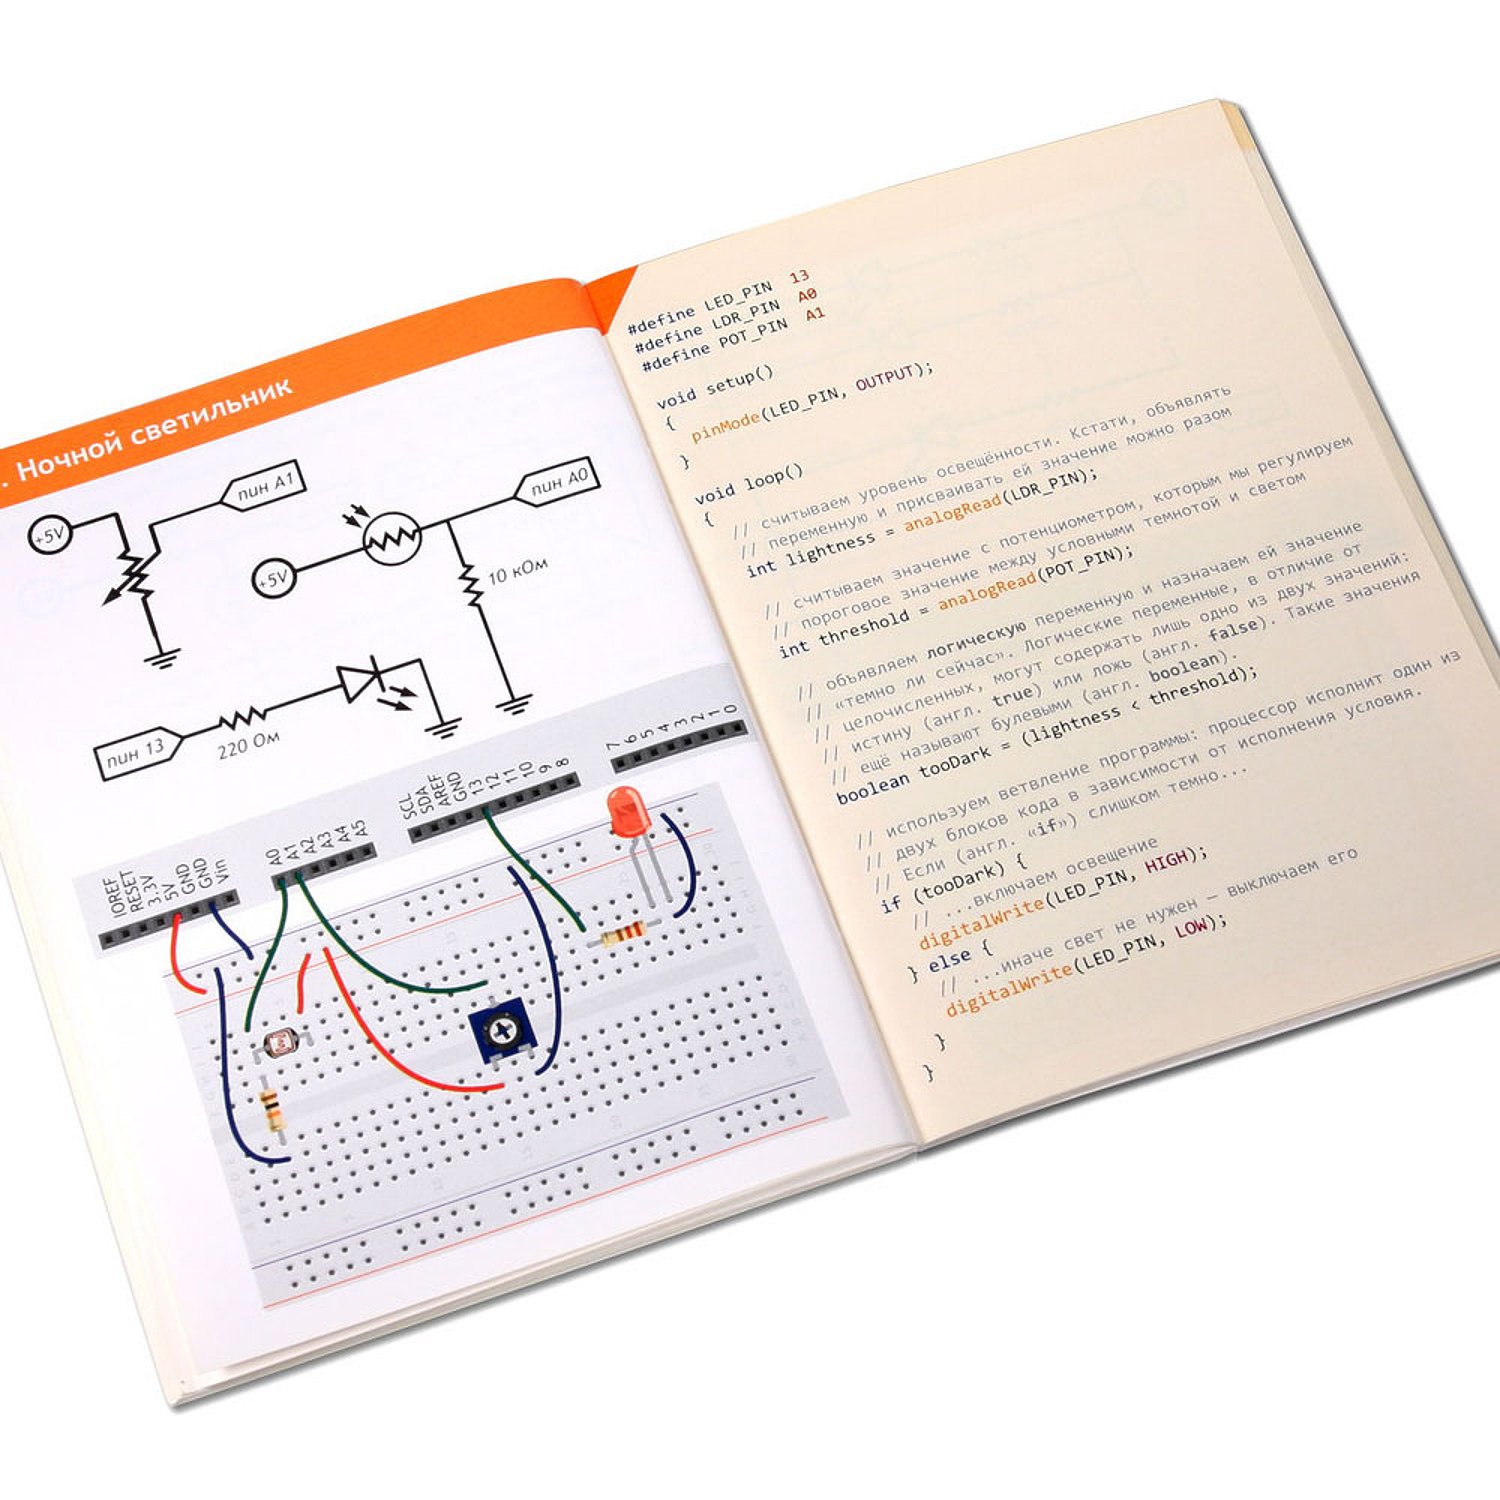 . Ночной светильник
+5V
пин A1
+5V
пин A0
10 кОм
пин 13
220 Ом
IOREF
RESET
3.3V
5V
GND
GND
Vin
A0
A1
A2
A3
A4
A5
SCL
SDA
AREF
GND
13
12
11
10
9
8
7
6
5
4
3
2
1
0
#define LED_PIN 13
#define LDR_PIN A0
#define POT_PIN A1
void setup()
{
pinMode(LED_PIN, OUTPUT);
}
void loop()
{
// считываем уровень освещённости. Кстати, объявлять
// переменную и присваивать ей значение можно разом
int lightness = analogRead(LDR_PIN);
// считываем значение с потенциометром, которым мы регулируем
// пороговое значение между условными темнотой и светом
int threshold = analogRead(POT_PIN);
// объявляем логическую переменную и назначаем ей значение
// «темно ли сейчас». Логические переменные, в отличие от
// целочисленных, могут содержать лишь одно из двух значений:
// истину (англ. true) или ложь (англ. false). Такие значения
// ещё называют булевыми (англ. boolean).
boolean tooDark = (lightness < threshold);
// используем ветвление программы: процессор исполнит один из
// двух блоков кода в зависимости от исполнения условия.
// Если (англ. «if») слишком темно...
if (tooDark) {
// ...включаем освещение
digitalWrite(LED_PIN, HIGH);
} else {
// ...иначе свет не нужен — выключаем его
digitalWrite(LED_PIN, LOW);
}
}